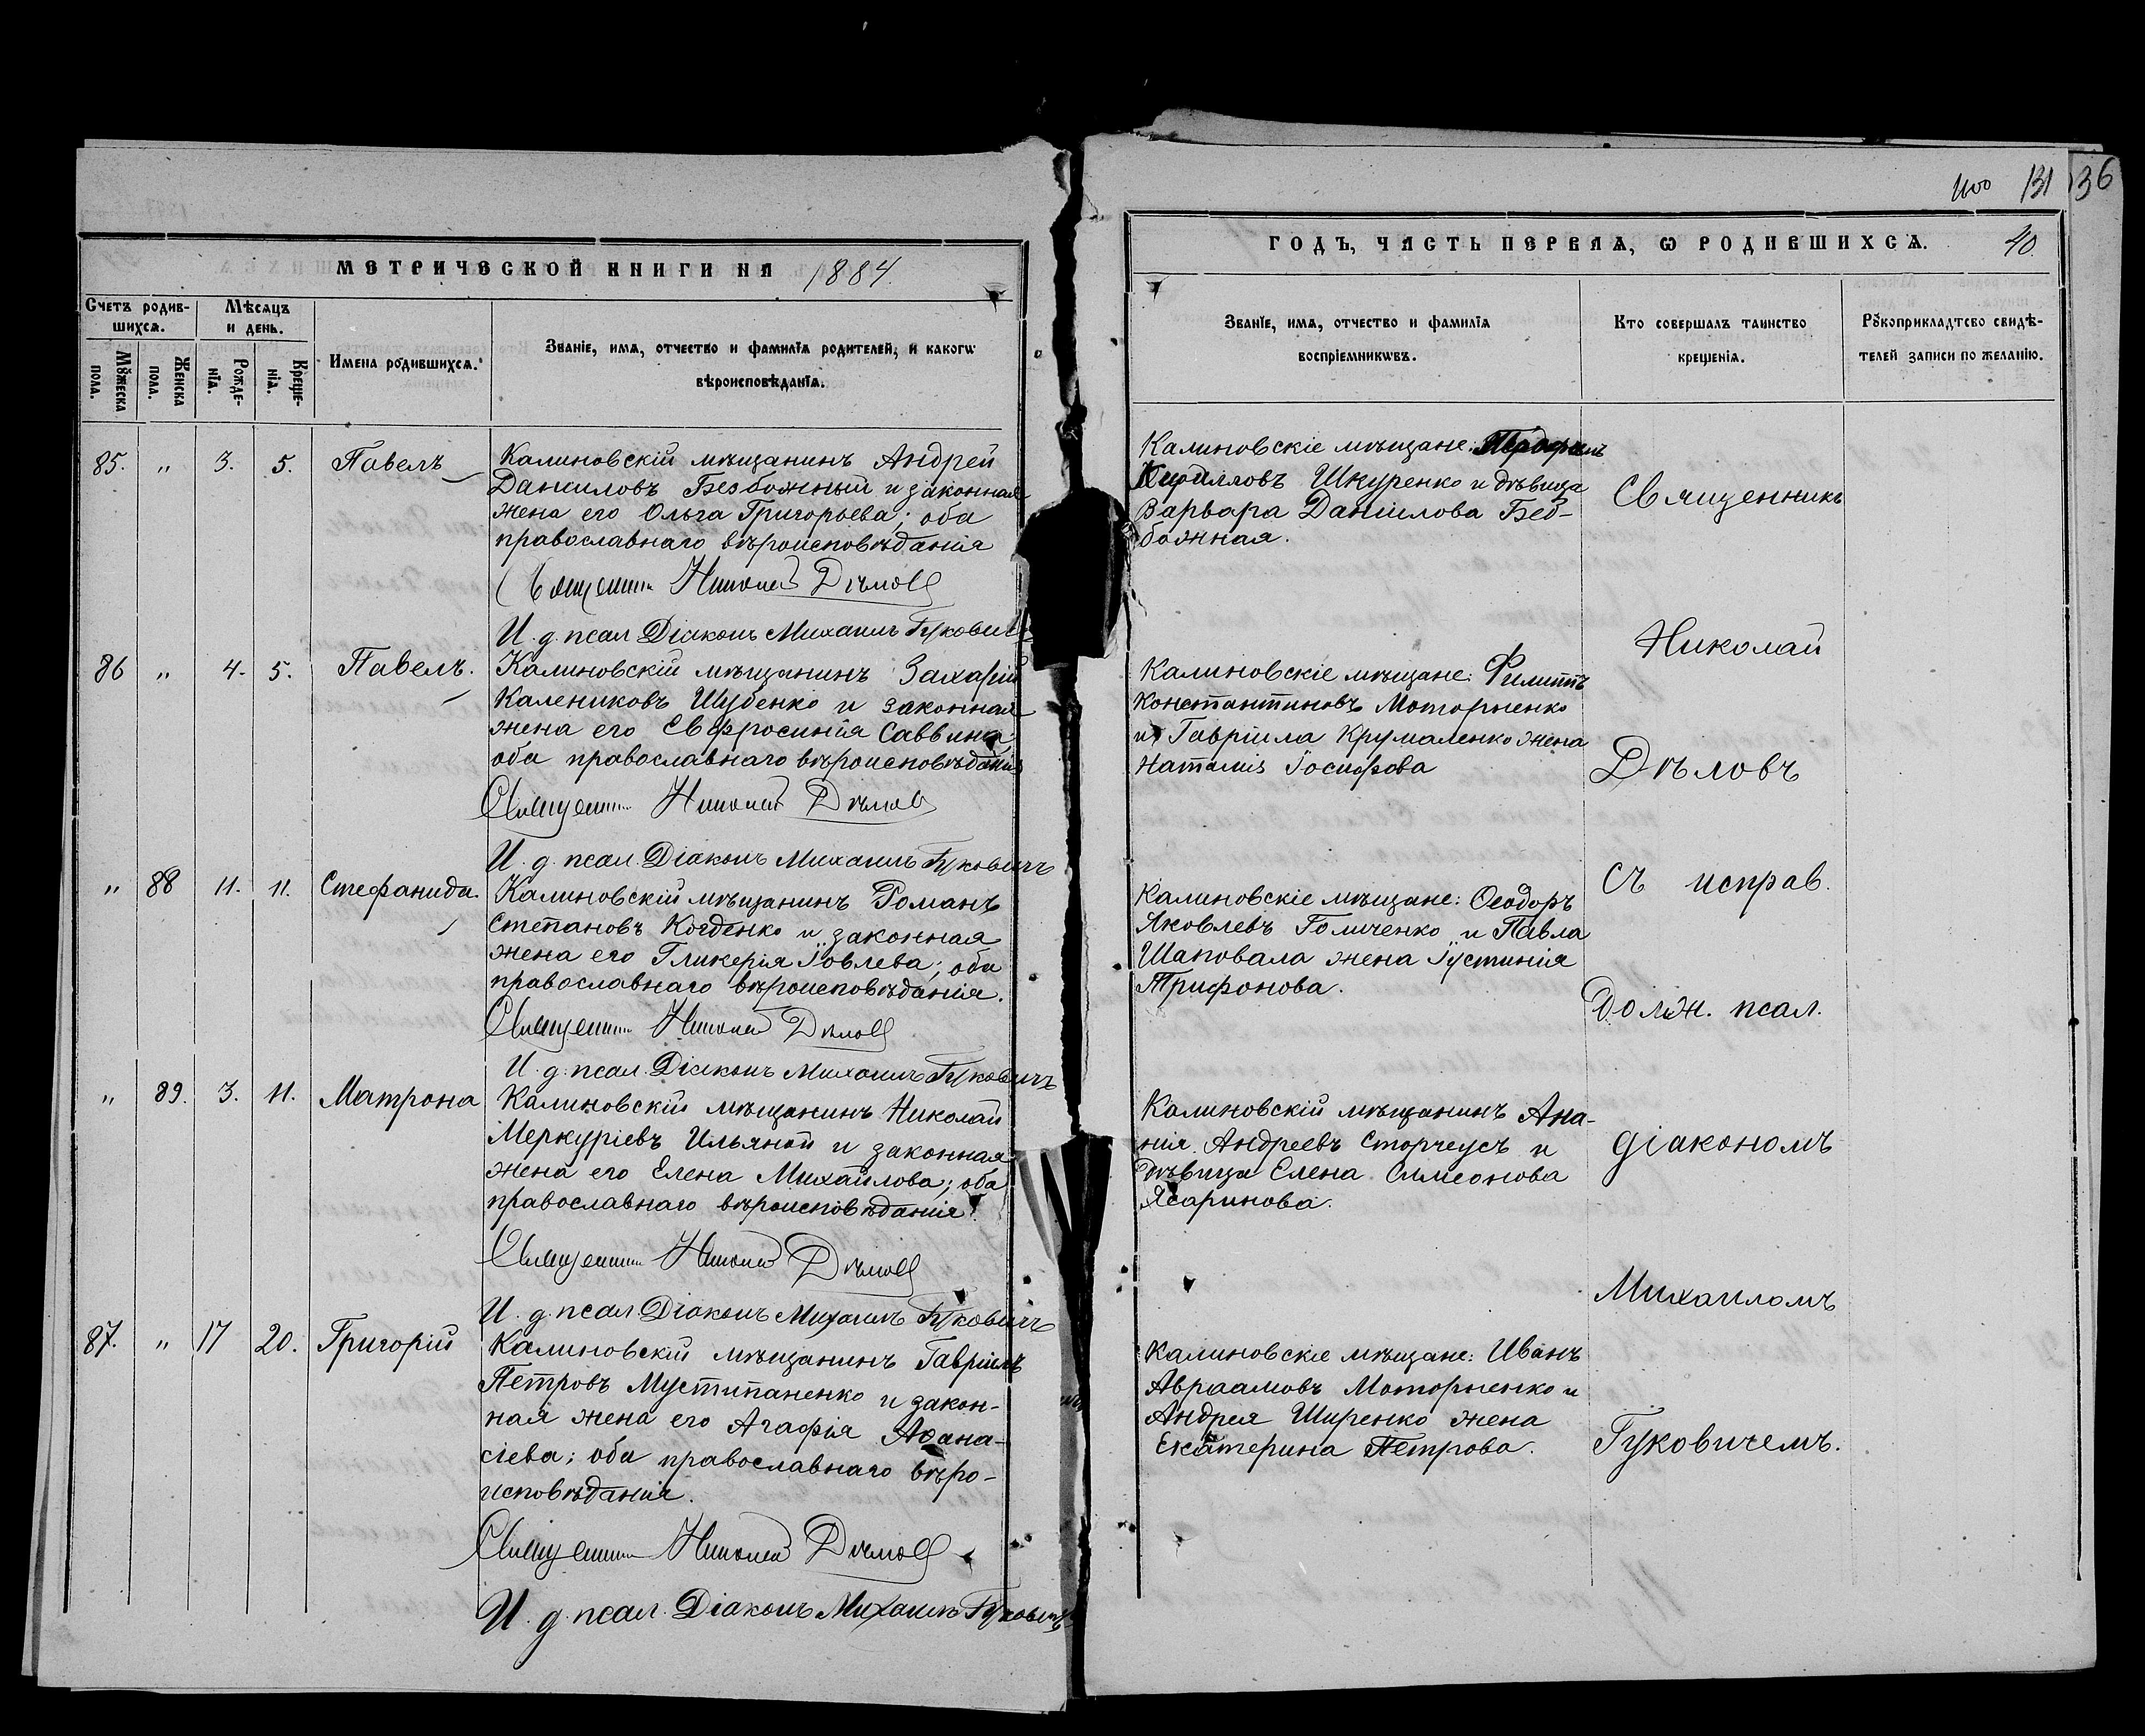 МЕТРИЧЕСКОЙ КНИГИ НА 1884.
Счетъ родив-
шихсѧ.
Мѣсѧцъ
и день.
Мꙋжеска
пола.
Женска
пола.
Рожде-
нїѧ.
Креще-
нїѧ.
Имена родившихсѧ.
Званїе, имѧ, отчество и фамилїѧ родителей, и какогѡ
вѣроисповѣданїѧ.
85. „ 3. 5. Павелъ
Калиновскій мѣщанинъ Андрей
Даниловъ Безбожный и законная
жена его Ольга Григорьева; оба
православнаго вѣроисповѣданія
Священникъ Николай Дѣловъ
И. д. псал. Діаконъ Михаилъ Гуковичъ
86 „ 4. 5. Павелъ.
Калиновскій мѣщанинъ Захарій
Калениковъ Шубенко и законная
жена его Евфросинія Саввина;
оба православнаго вѣроисповѣданія
Священникъ Николай Дѣловъ
И. д. псал. Діаконъ Михаилъ Гуковичъ
„ 88 11. 11. Стефанида.
Калиновскій мѣщанинъ Романъ
Степановъ Когденко и законная
жена его Гликерія Іовлева; оба
православнаго вѣроисповѣданія.
Священникъ Николай Дѣловъ
И. д. псал. Діаконъ Михаилъ Гуковичъ
„ 89. 3. 11. Матрона
Калиновскій мѣщанинъ Николай
Меркуріевъ Ильяной и законная
жена его Елена Михайлова; оба
православнаго вѣроисповѣданія.
Священникъ Николай Дѣловъ
И. д. псал. Діаконъ Михаилъ Гуковичъ
87. „ 17 20. Григорій
Калиновскій мѣщанинъ Гавріилъ
Петровъ Мустипаненко и закон-
ная жена его Агафія Аѳана-
сіева; оба православнаго вѣро-
исповѣданія.
Священникъ Николай Дѣловъ
И. д. псал. Діаконъ Михаилъ Гуковичъ
131 36
ГОДЪ, ЧАСТЬ ПЕРВАЯ, Ѡ РОДИВШИХСѦ. 40.
Званїе, имѧ, отчество и фамилїѧ
воспрїемникѡвъ.
Кто совершалъ таинство
крещенїѧ.
Рꙋкоприкладтсво свидѣ-
телей записи по желанїю.
Калиновскіе мѣщане:
Кирилловъ Шкуренко и дѣвица
Варвара Даніилова Без-
божная.
Калиновскіе мѣщане: Филиппъ
Константиновъ Моторненко
и Гавріила Крумаленко жена
Наталія Іосифова
Калиновскіе мѣщане: Ѳеодоръ
Яковлевъ Голиченко и Павла
Шаповала жена Іустинія
Трифонова.
Калиновскій мѣщанинъ Ана-
нія Андреевъ Сторчеусъ и
дѣвица Елена Симеонова
Калиновскіе мѣщане: Иванъ
Авраамовъ Моторненко и
Андрея Ширенко жена
Екатерина Петрова.
Священникъ
Николай
Дѣловъ
съ исправ.
долж. псал.
діакономъ
Михаиломъ
Гуковичемъ.